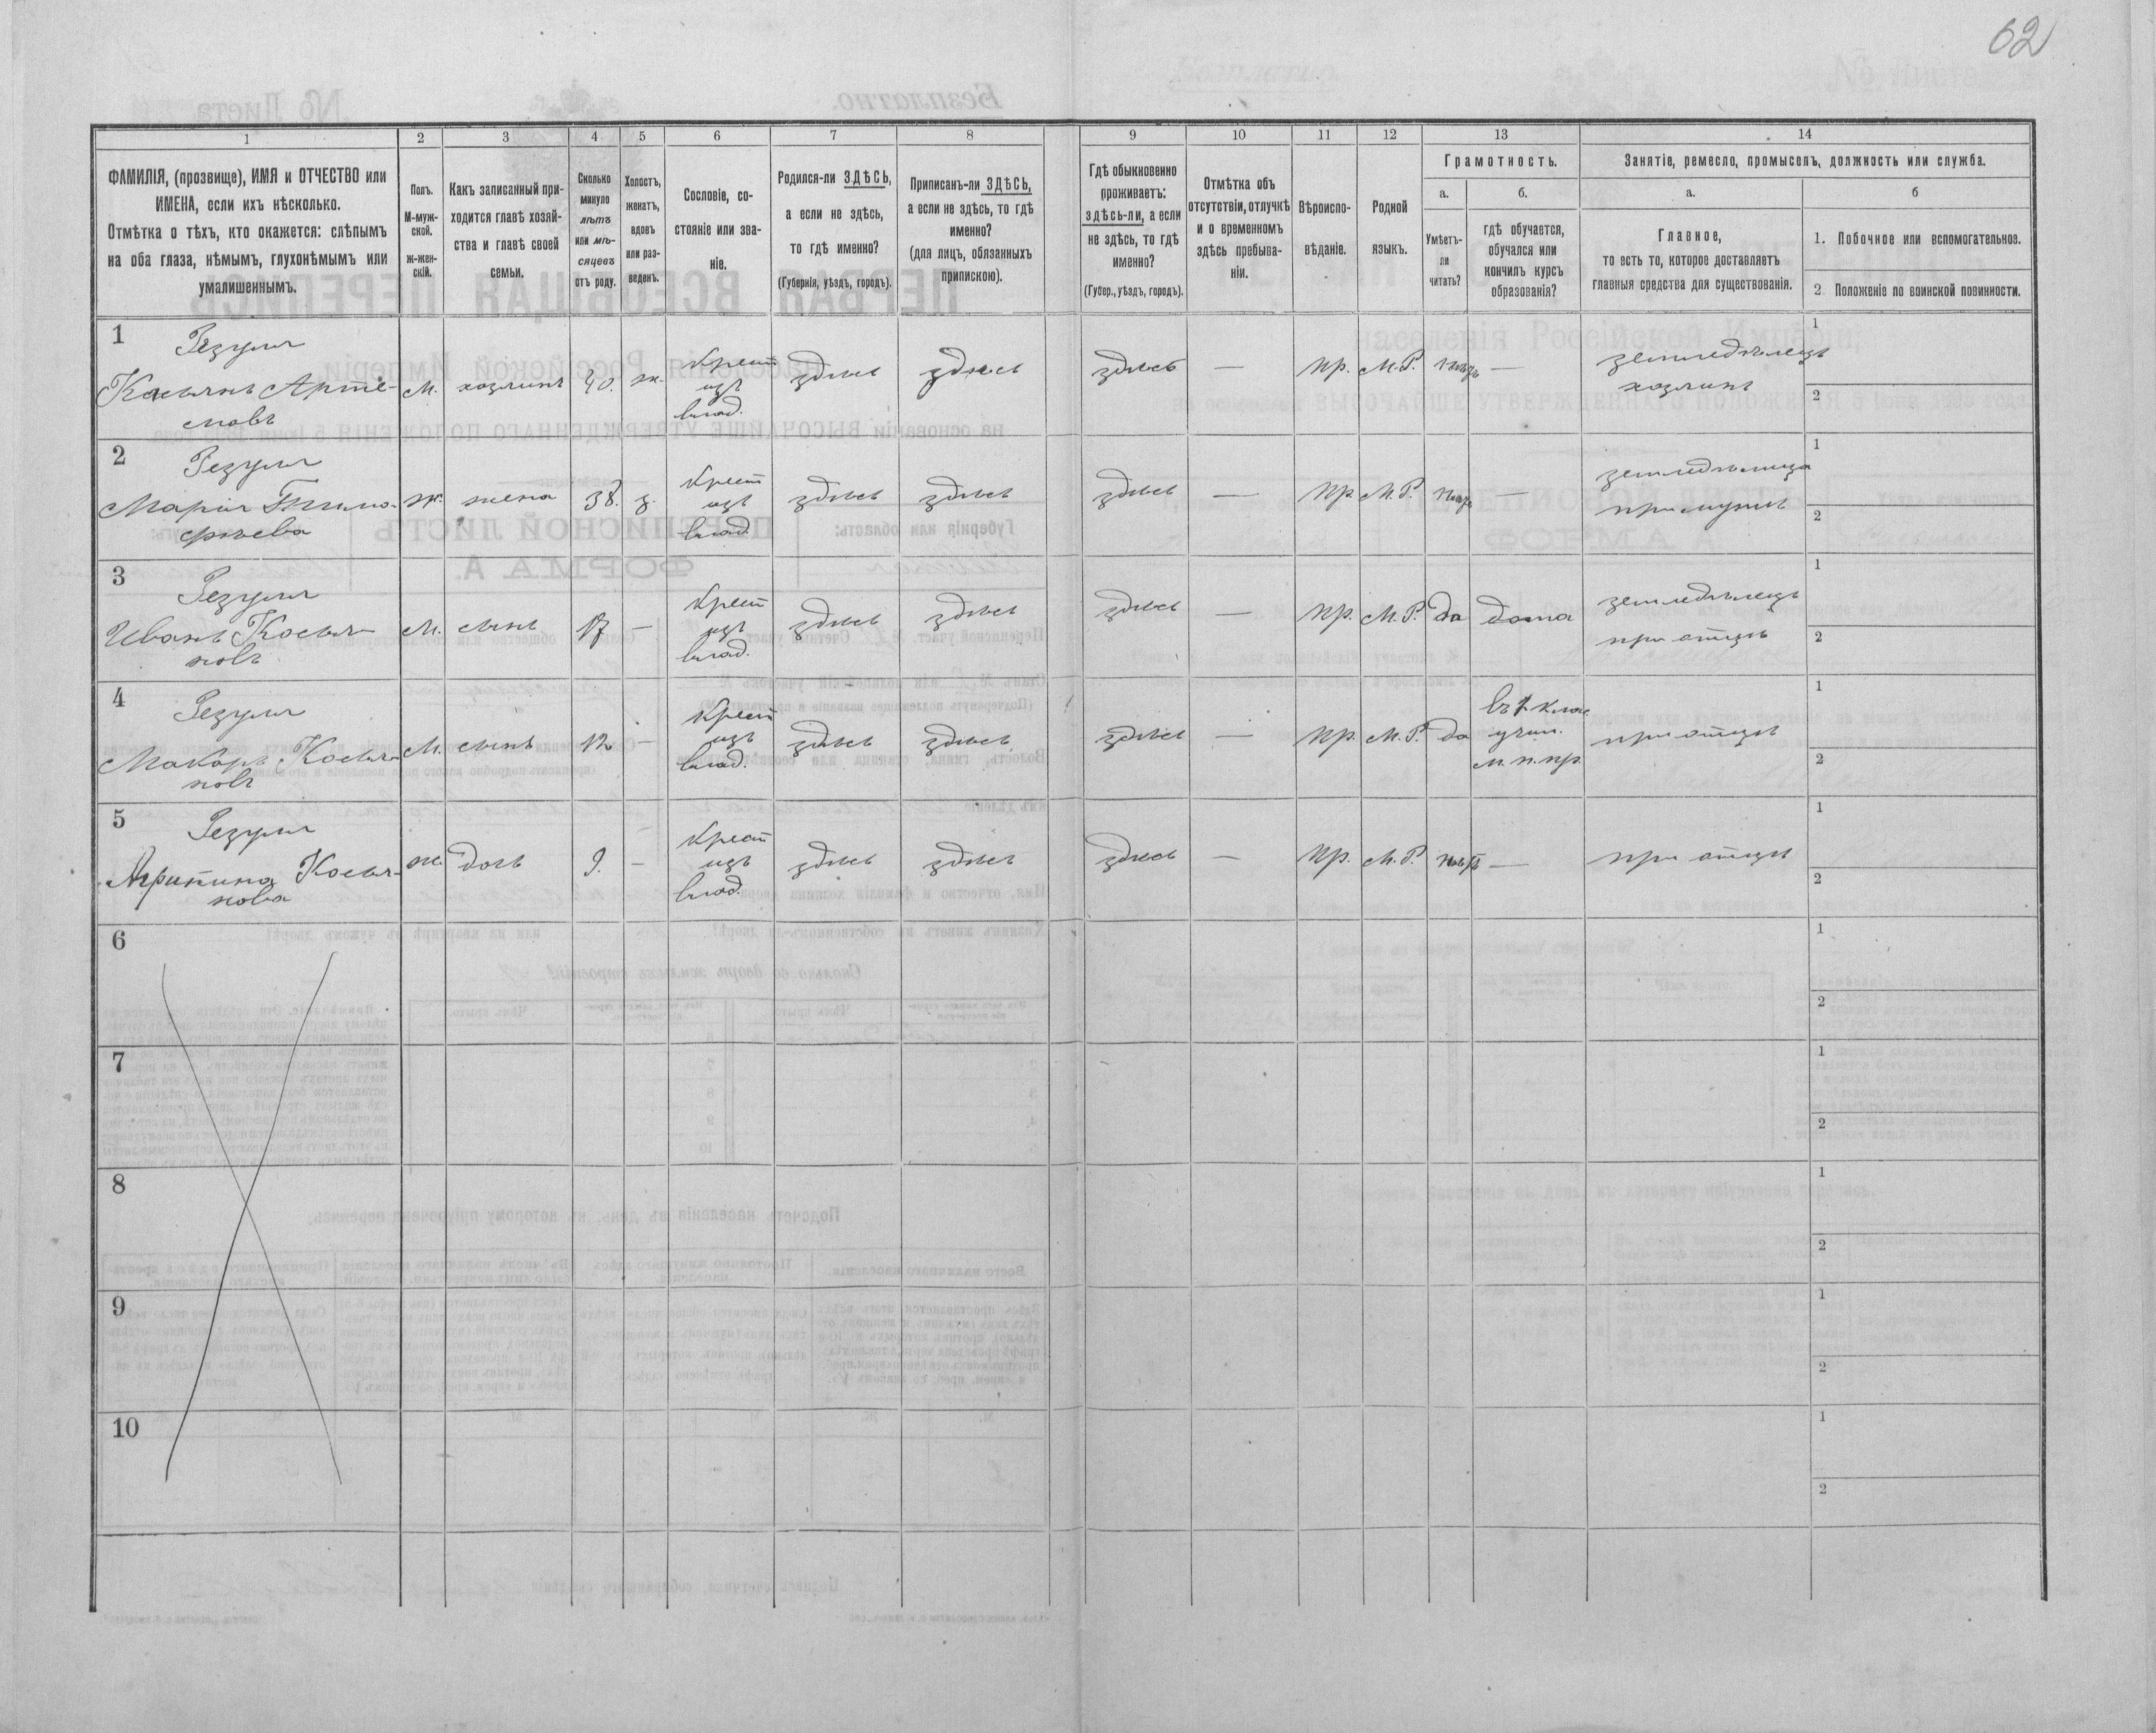 62
1
2
3
4
5
6
7
8
9
10
11
12
13
14
ФАМИЛІЯ, (прозвище), ИМЯ и ОТЧЕСТВО или
ИМЕНА, если ихъ нѣсколько.
Отмѣтка о тѣхъ, кто окажется: слѣпымъ
на оба глаза, нѣмымъ, глухонѣмымъ или
умалишеннымъ.
Полъ.
М-муж-
ской.
ж-жен-
скій.
Какъ записанный при-
ходится главѣ хозяй-
ства и главѣ своей
семьи.
Сколько
минуло
лѣтъ
или мѣ-
сяцевъ
отъ роду.
Холостъ,
женатъ,
вдовъ
или раз-
веденъ.
Сословіе, со-
стояніе или зва-
ніе.
Родился-ли ЗДѢСЬ,
а если не здѣсь,
то гдѣ именно?
(Губернія, уѣздъ, городъ).
Приписанъ-ли ЗДѢСЬ,
а если не здѣсь, то гдѣ
именно?
(для лицъ, обязанныхъ
припискою).
Гдѣ обыкновенно
проживаетъ:
здѣсь-ли, а если
не здѣсь, то гдѣ
именно?
(Губер., уѣздъ, городъ).
Отмѣтка объ
отсутствіи, отлучкѣ
и о временномъ
здѣсь пребыва-
ніи.
Вѣроиспо-
вѣданіе.
Родной
языкъ.
Грамотность.
а.
Умѣетъ-
ли
читать?
б.
гдѣ обучается,
обучался или
кончилъ курсъ
образованія?
Занятіе, ремесло, промыселъ, должность или служба.
а.
Главное,
то есть то, которое доставляетъ
главныя средства для существованія.
б
1. Побочное или вспомогательное.
2 Положеніе по воинской повинности.
1
Резуля
Касьянъ Артe-
мовъ
М.
хозяинъ
40.
ж.
Крест
изъ
влад.
здѣсь
здѣсь
здѣсь
—
пр.
М.Р.
нѣтъ
—
земледѣлецъ
хозяинъ
1
2
2
Резуля
Марія Тимо-
фѣева
ж.
жена
38.
з.
Крест
изъ
влад.
здѣсь
здѣсь
здѣсь
—
пр.
М.Р.
нѣтъ
—
земледѣлица
при мужѣ
1
2
3
Резуля
Иванъ Касья-
новъ
М.
сынъ
17
—
Крест
изъ
влад.
здѣсь
здѣсь
здѣсь
—
пр.
М.Р.
да
дома
земледѣлецъ
при отцѣ
1
2
4
Резуля
Макаръ Касья-
новъ
М.
сынъ
12
—
Крест
изъ
влад.
здѣсь
здѣсь
здѣсь
—
пр.
М.Р.
да
въ 1 клас
учил.
м. н. пр.
при отцѣ
1
2
5
Резуля
Агрипина Касья-
нова
ж.
дочь
9.
—
Крест
изъ
влад.
здѣсь
здѣсь
здѣсь
—
пр.
М.Р.
нѣтъ
—
при отцѣ
1
2
6
1
2
7
1
2
8
1
2
9
1
2
10
1
2